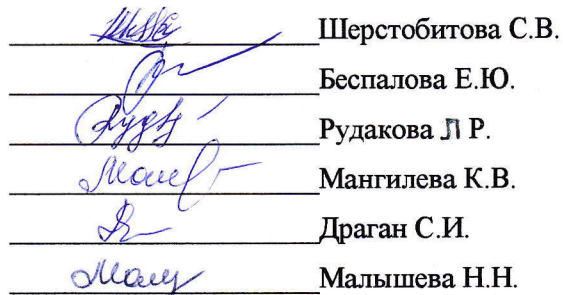 Шерстобитова С.В.
Беспалова Е.Ю.
Рудакова Л Р.
Мангилева К.В.
Драган С.И.
Малышева Н.Н.